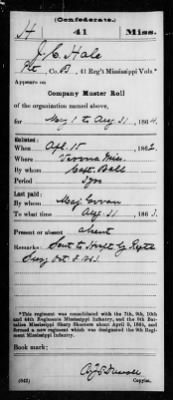 (Confederate.)
H 41 Miss.
J. C. Hale
Pvt, Co. B, 41 Reg't Mississippi Vols.*
Appears on
Company Muster Roll
of the organization named above,
for May 1 to Aug 31, 1864.
Enlisted:
When Apl. 15, 1862.
Where Verona Miss.
By whom Capt. Ball
Period 3 yrs
Last paid:
By whom Maj. Govan
To what time Aug 31, 1863.
Present or absent Absent
Remarks: Sent to Hosptl by Regtl
Surg Oct. 8. 1863.
*This regiment was consolidated with the 7th, 9th, 10th
and 44th Regiments Mississippi Infantry, and the 9th Battalion
Mississippi Sharp Shooters about April 9, 1865, and
formed a new regiment which was designated the 9th Regiment
Mississippi Infantry.
Book mark:
(642) Copyist.